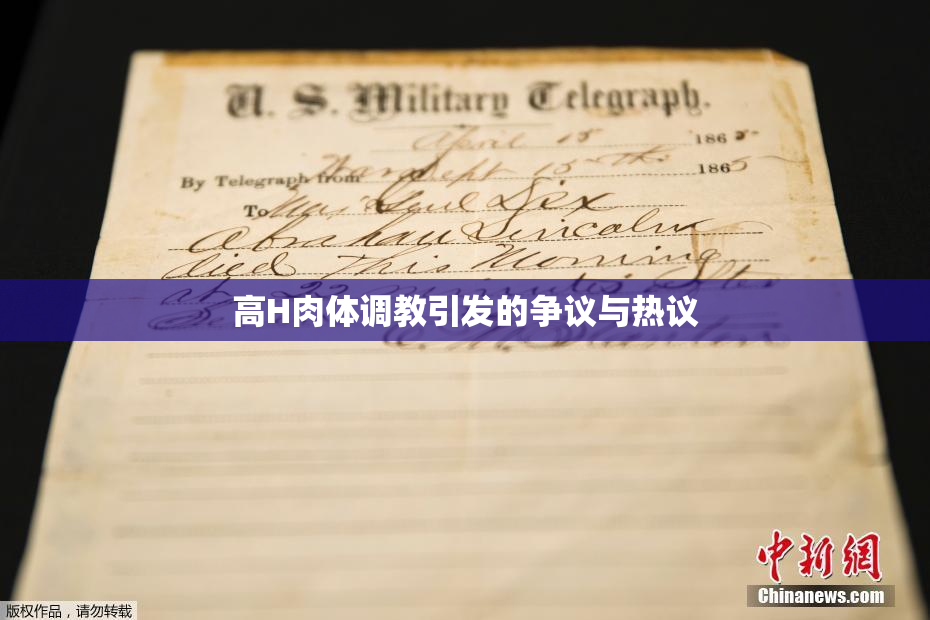 U. S. Military Telegraph.
April 15 1865
By Telegraph from War Dept 15th 1865
To Maj Genl Dix
Abraham Lincoln
died This Morning
at 22 minutes after
高H肉体调教引发的争议与热议
E. M. Stanton
中新网
Chinanews.com
版权作品，请勿转载